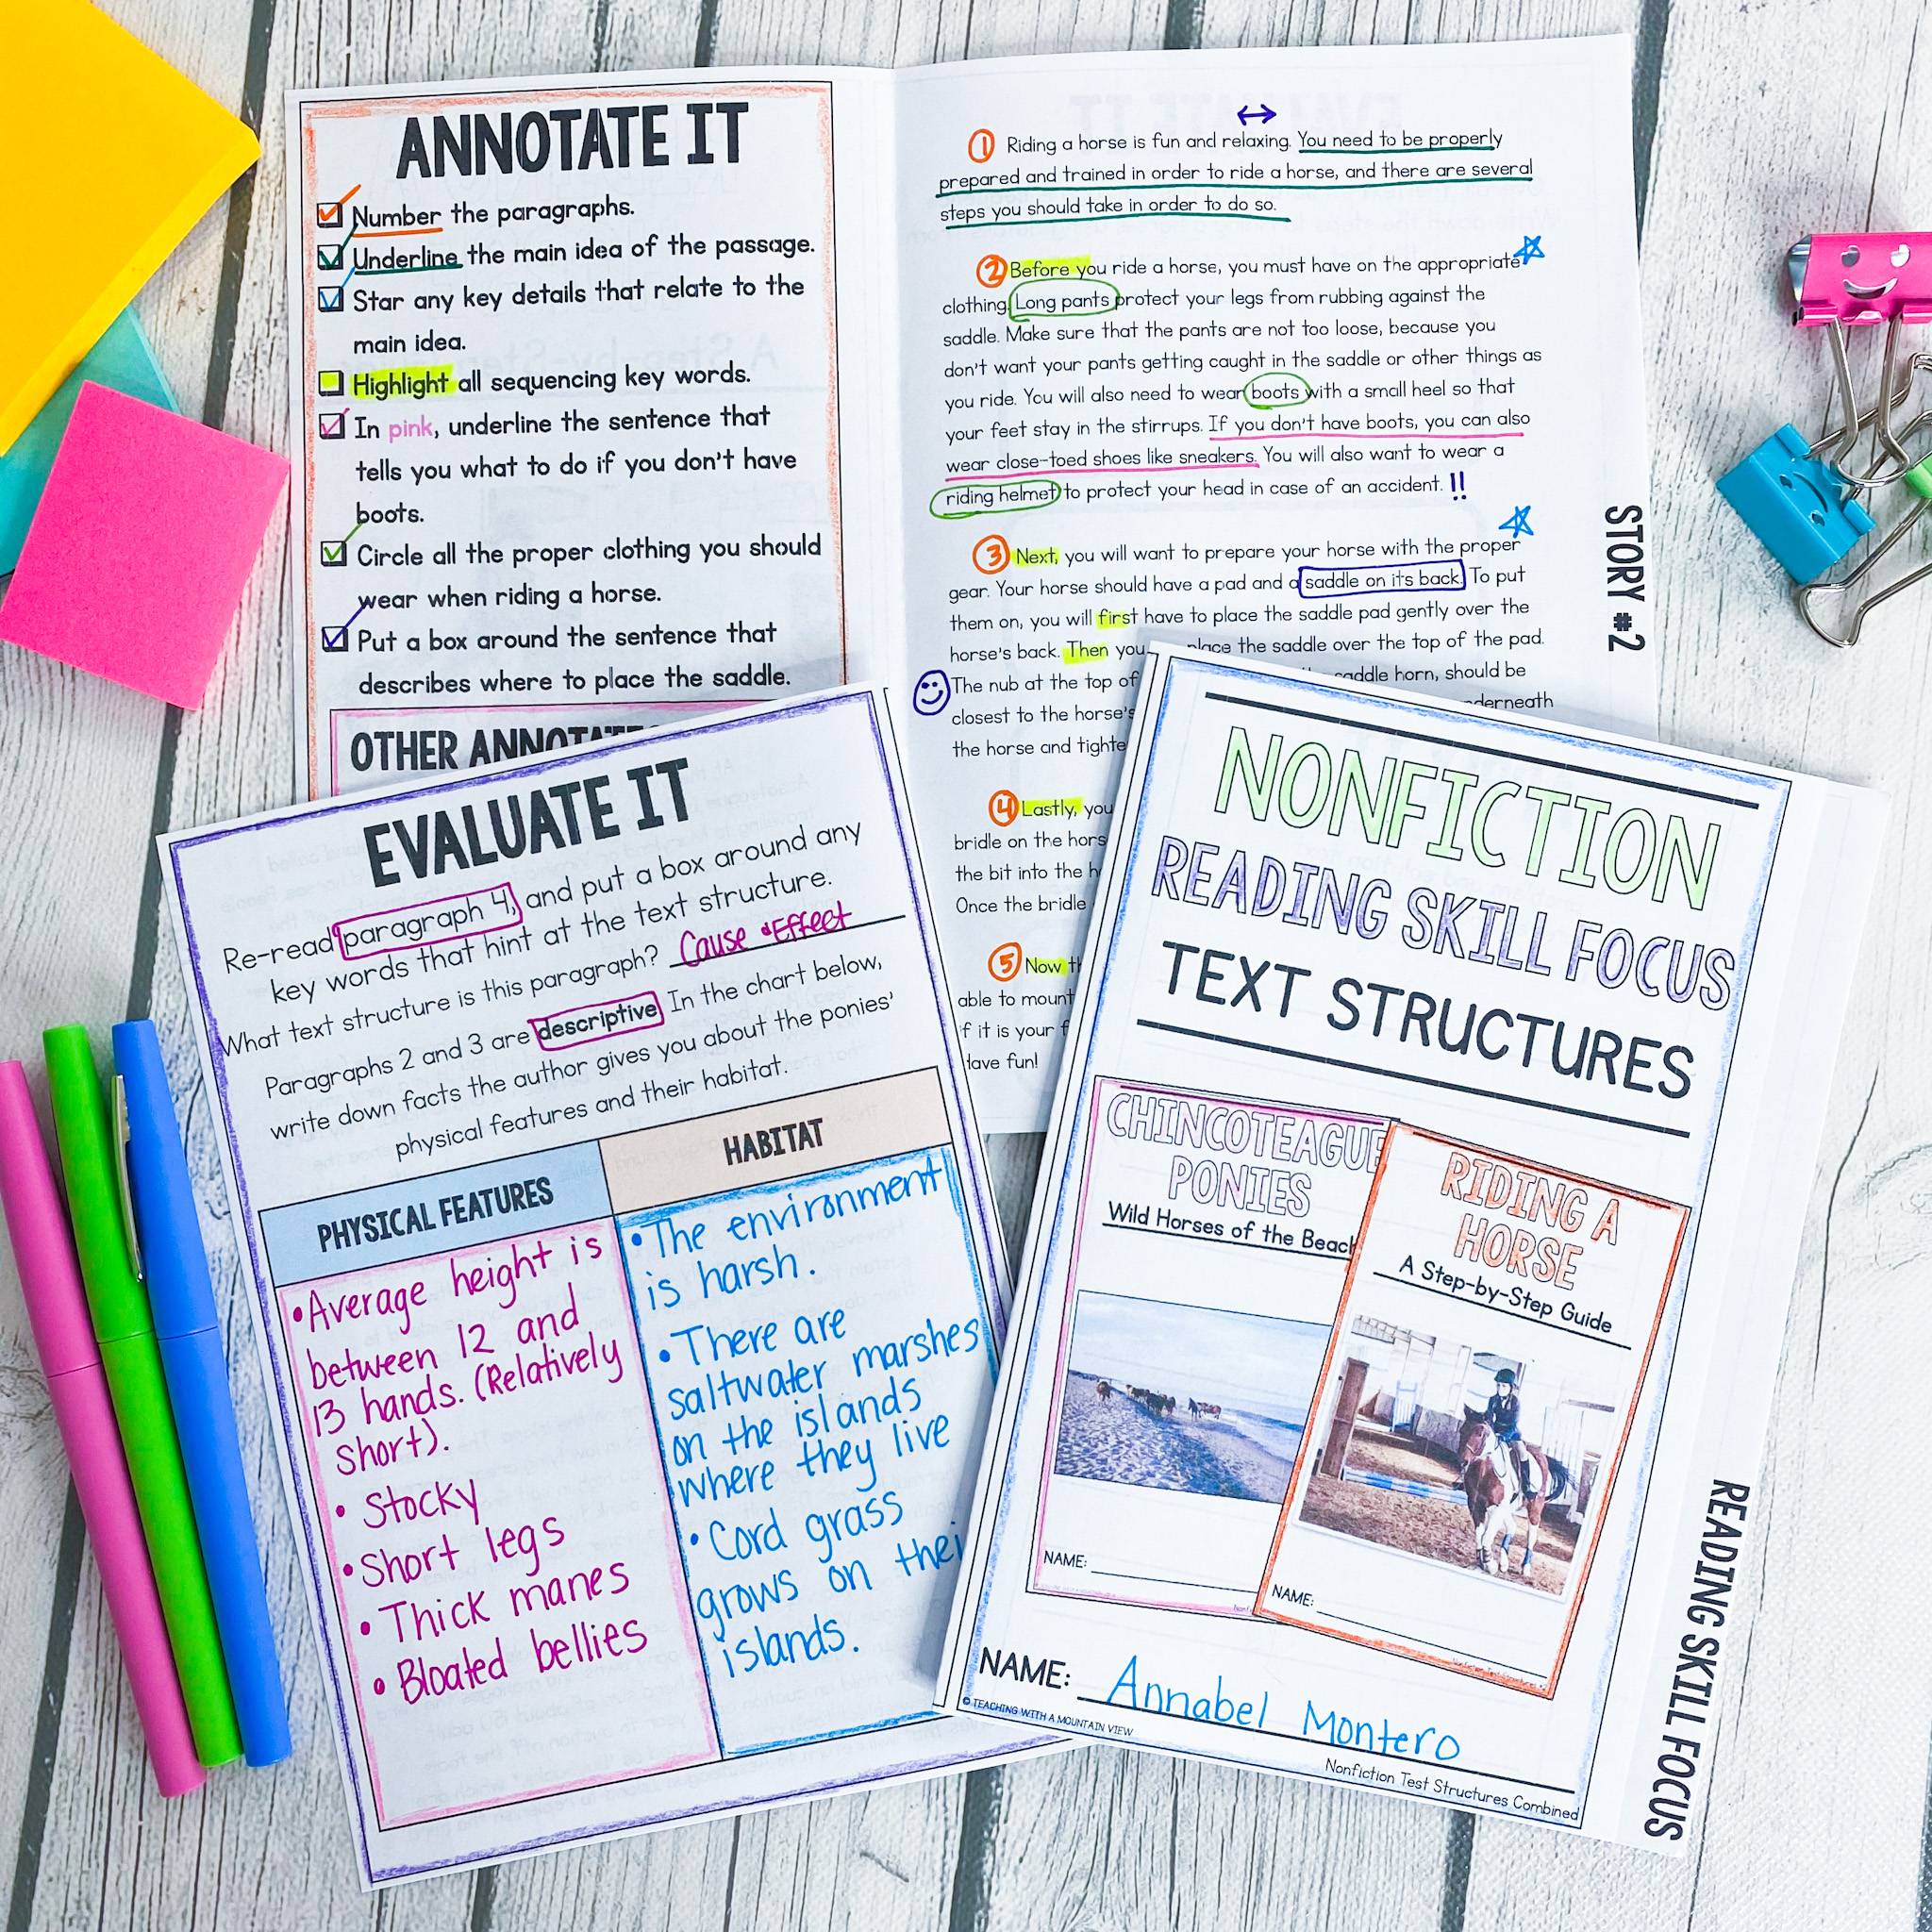 ANNOTATE IT
Number the paragraphs.
Underline the main idea of the passage.
Star any key details that relate to the
main idea.
Highlight all sequencing key words.
In pink, underline the sentence that
tells you what to do if you don't have
boots.
Circle all the proper clothing you should
wear when riding a horse.
Put a box around the sentence that
describes where to place the saddle.
OTHER
1 Riding a horse is fun and relaxing. You need to be properly
prepared and trained in order to ride a horse, and there are several
steps you should take in order to do so.
2 Before you ride a horse, you must have on the appropriate
clothing. Long pants protect your legs from rubbing against the
saddle. Make sure that the pants are not too loose, because you
don't want your pants getting caught in the saddle or other things as
you ride. You will also need to wear boots with a small heel so that
your feet stay in the stirrups. If you don't have boots, you can also
wear close-toed shoes like sneakers. You will also want to wear a
riding helmet to protect your head in case of an accident. !!
3 Next, you will want to prepare your horse with the proper
gear. Your horse should have a pad and a saddle on its back. To put
them on, you will first have to place the saddle pad gently over the
horse's back. Then you place the saddle over the top of the pad.
The nub at the top of saddle horn, should be
closest to the horse's underneath
the horse and tighte
4 Lastly, you
bridle on the hors
the bit into the h
Once the bridle
5 Now th
able to mount
if it is your f
Have fun!
STORY #2
EVALUATE IT
Re-read paragraph 4, and put a box around any
key words that hint at the text structure.
What text structure is this paragraph? Cause & Effect
Paragraphs 2 and 3 are descriptive. In the chart below,
write down facts the author gives you about the ponies'
physical features and their habitat.
PHYSICAL FEATURES
• Average height is
between 12 and
13 hands. (Relatively
short).
• Stocky
• Short legs
• Thick manes
• Bloated bellies
HABITAT
• The environment
is harsh.
• There are
saltwater marshes
on the islands
where they live
• Cord grass
grows on thei
islands.
NONFICTION
READING SKILL FOCUS
TEXT STRUCTURES
CHINCOTEAGUE
PONIES
Wild Horses of the Beach
NAME:
RIDING A
HORSE
A Step-by-Step Guide
NAME:
NAME: Annabel Montero
© TEACHING WITH A MOUNTAIN VIEW
Nonfiction Test Structures Combined
READING SKILL FOCUS